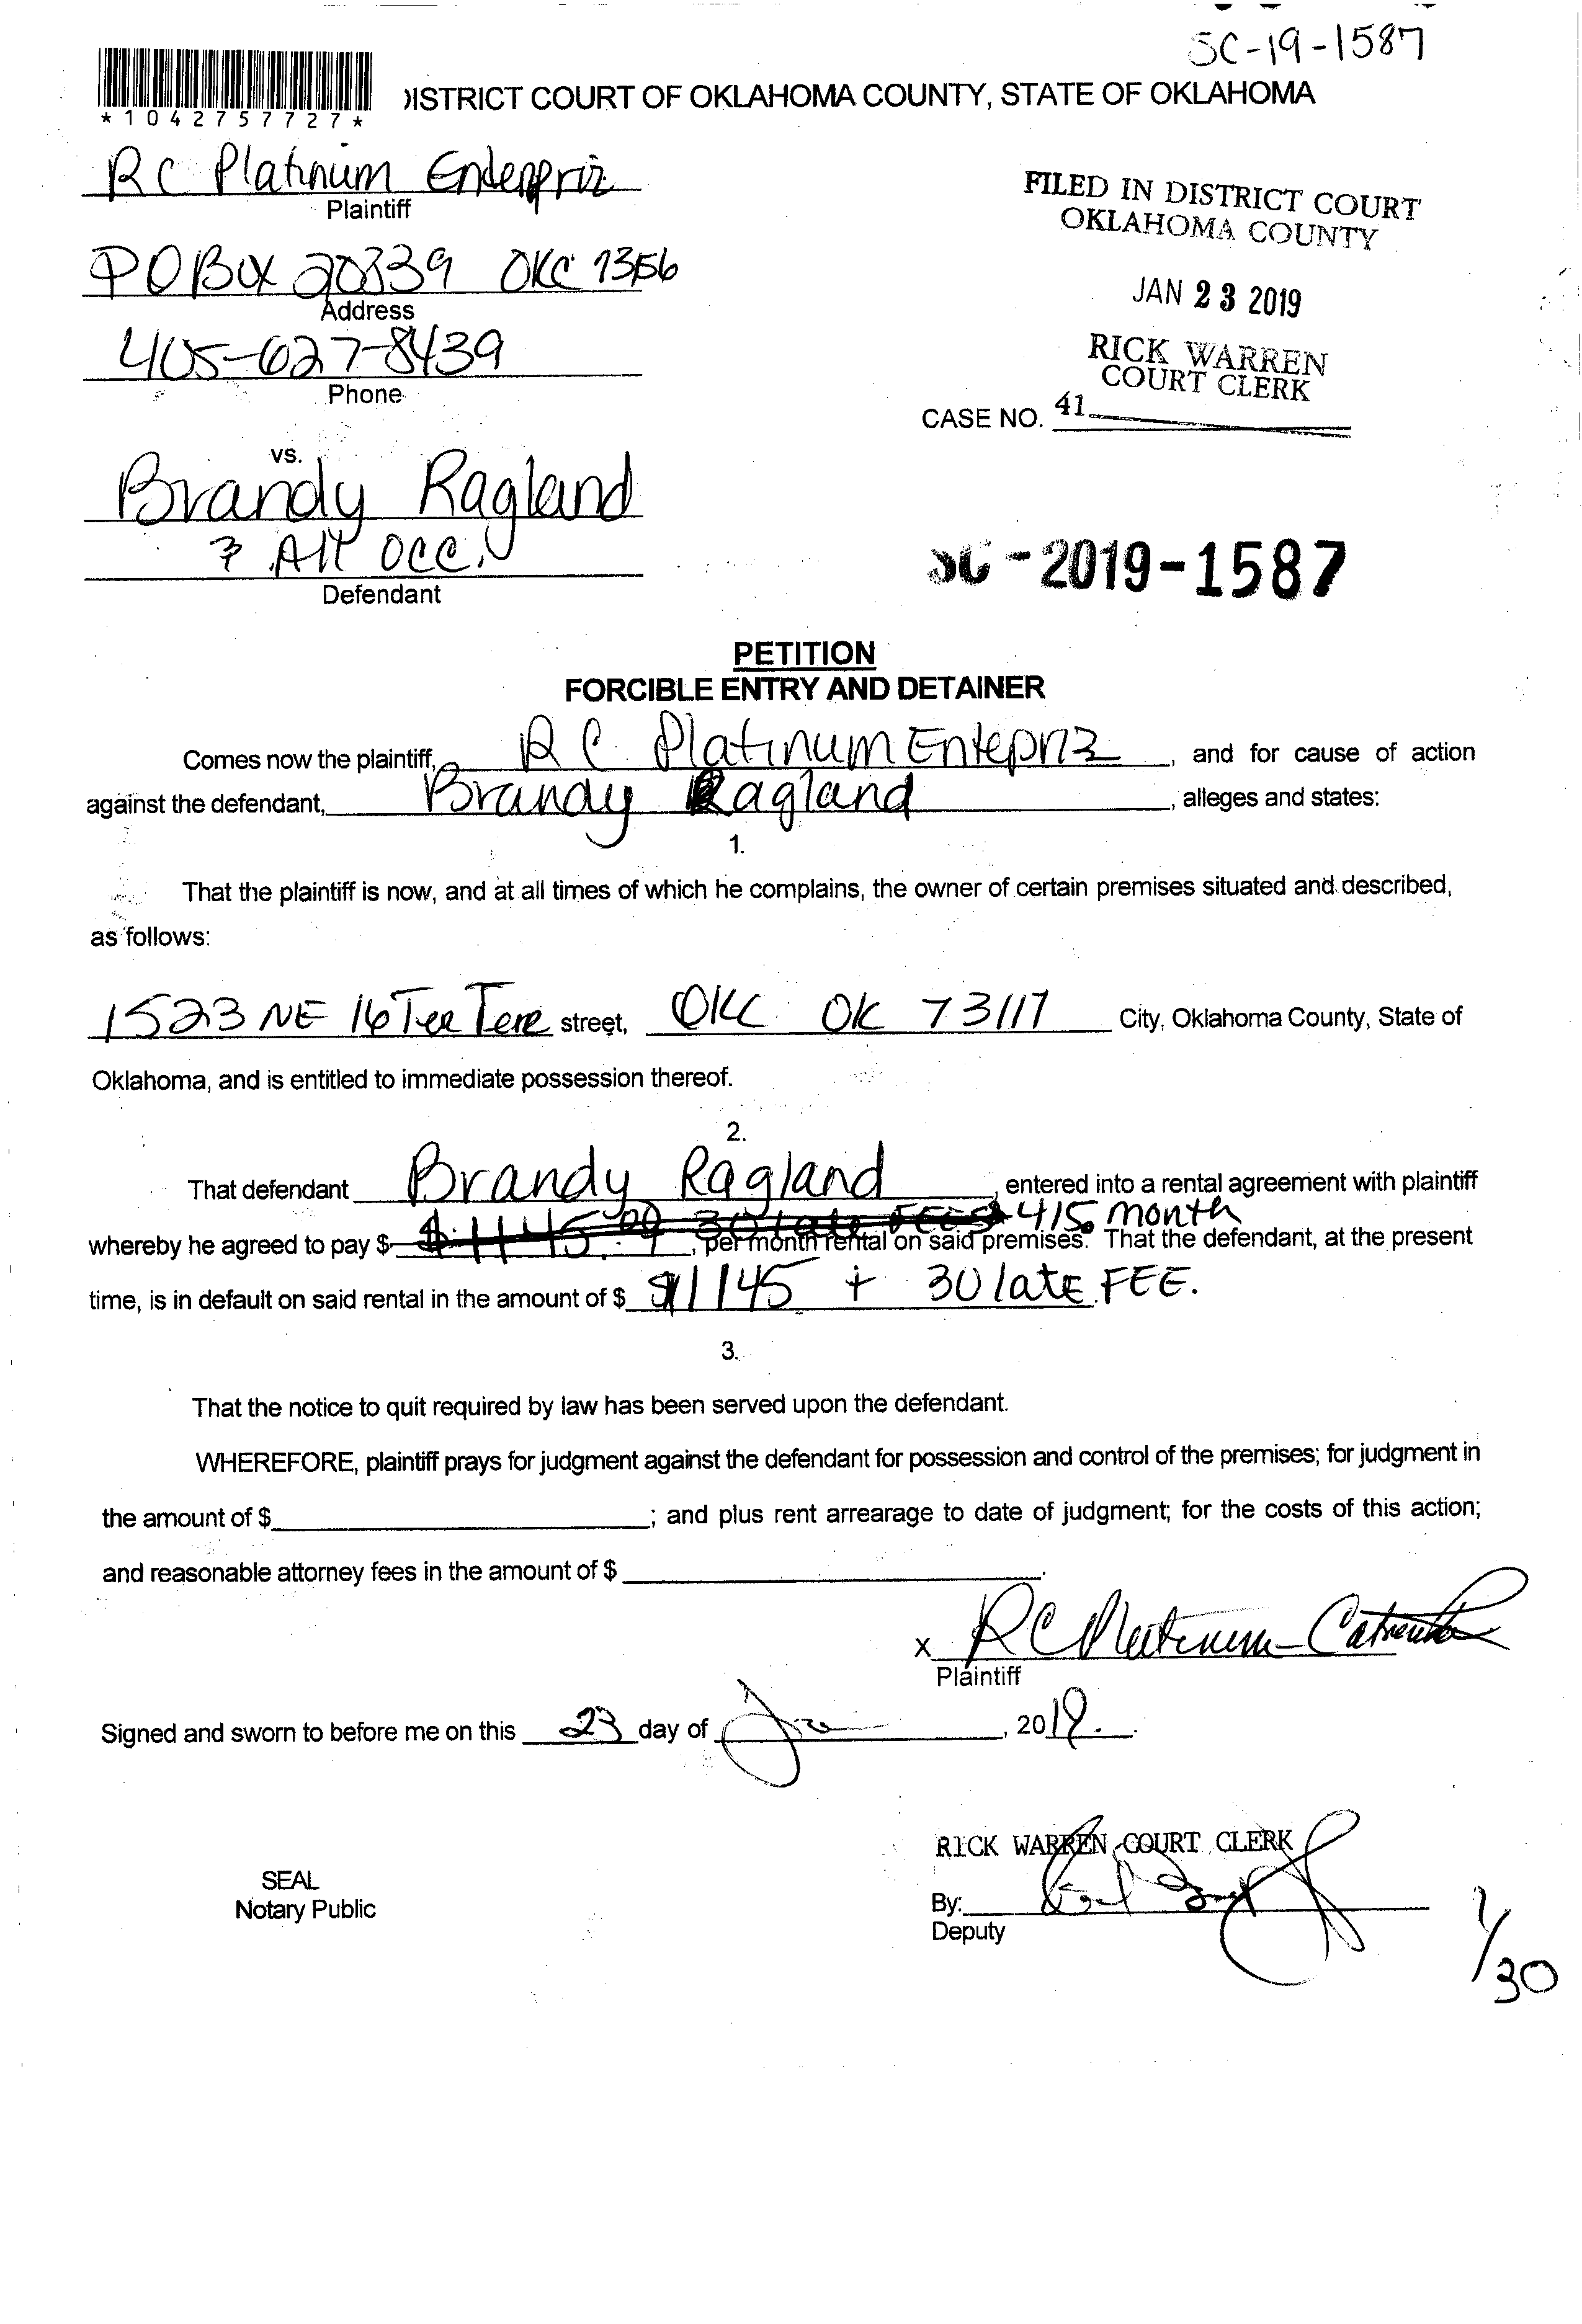 SC-19-1587
*1042757727*
ISTRICT COURT OF OKLAHOMA COUNTY, STATE OF OKLAHOMA
RC Platinum
Plaintiff
FILED IN DISTRICT COURT
OKLAHOMA COUNTY
PO Box 20339 OKC
Address
JAN 23 2019
405-627-8439
Phone
RICK WARREN
COURT CLERK
CASE NO. 41
vs.
Brandy Ragland
& All OCC.
Defendant
SC-2019-1587
PETITION
FORCIBLE ENTRY AND DETAINER
Comes now the plaintiff, RC Platinum Entepriz, and for cause of action
against the defendant, Brandy Ragland, alleges and states:
1.
That the plaintiff is now, and at all times of which he complains, the owner of certain premises situated and described,
as follows:
1523 NE 16 street, OKC OK 73117 City, Oklahoma County, State of
Oklahoma, and is entitled to immediate possession thereof.
2.
That defendant Brandy Ragland, entered into a rental agreement with plaintiff
$1145.00 30 late FEES 415. month
whereby he agreed to pay $, per month rental on said premises. That the defendant, at the present
time, is in default on said rental in the amount of $ $1145 + 30 late FEE.
3.
That the notice to quit required by law has been served upon the defendant.
WHEREFORE, plaintiff prays for judgment against the defendant for possession and control of the premises; for judgment in
the amount of $; and plus rent arrearage to date of judgment; for the costs of this action;
and reasonable attorney fees in the amount of $.
X RC Platinum
Plaintiff
Signed and sworn to before me on this 23 day of Jan, 2019.
RICK WARREN COURT CLERK
SEAL
Notary Public
By:
Deputy
1/30